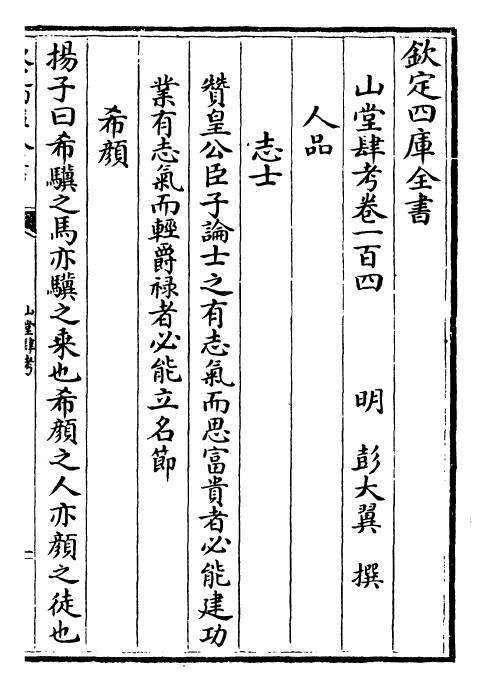 欽定四庫全書
山堂肆考卷一百四
明 彭大翼 撰
人品
志士
贊皇公臣子論士之有志氣而思富貴者必能建功
業有志氣而輕爵禄者必能立名節
希顔
揚子曰希驥之馬亦驥之乘也希顔之人亦顔之徒也
山堂肆考